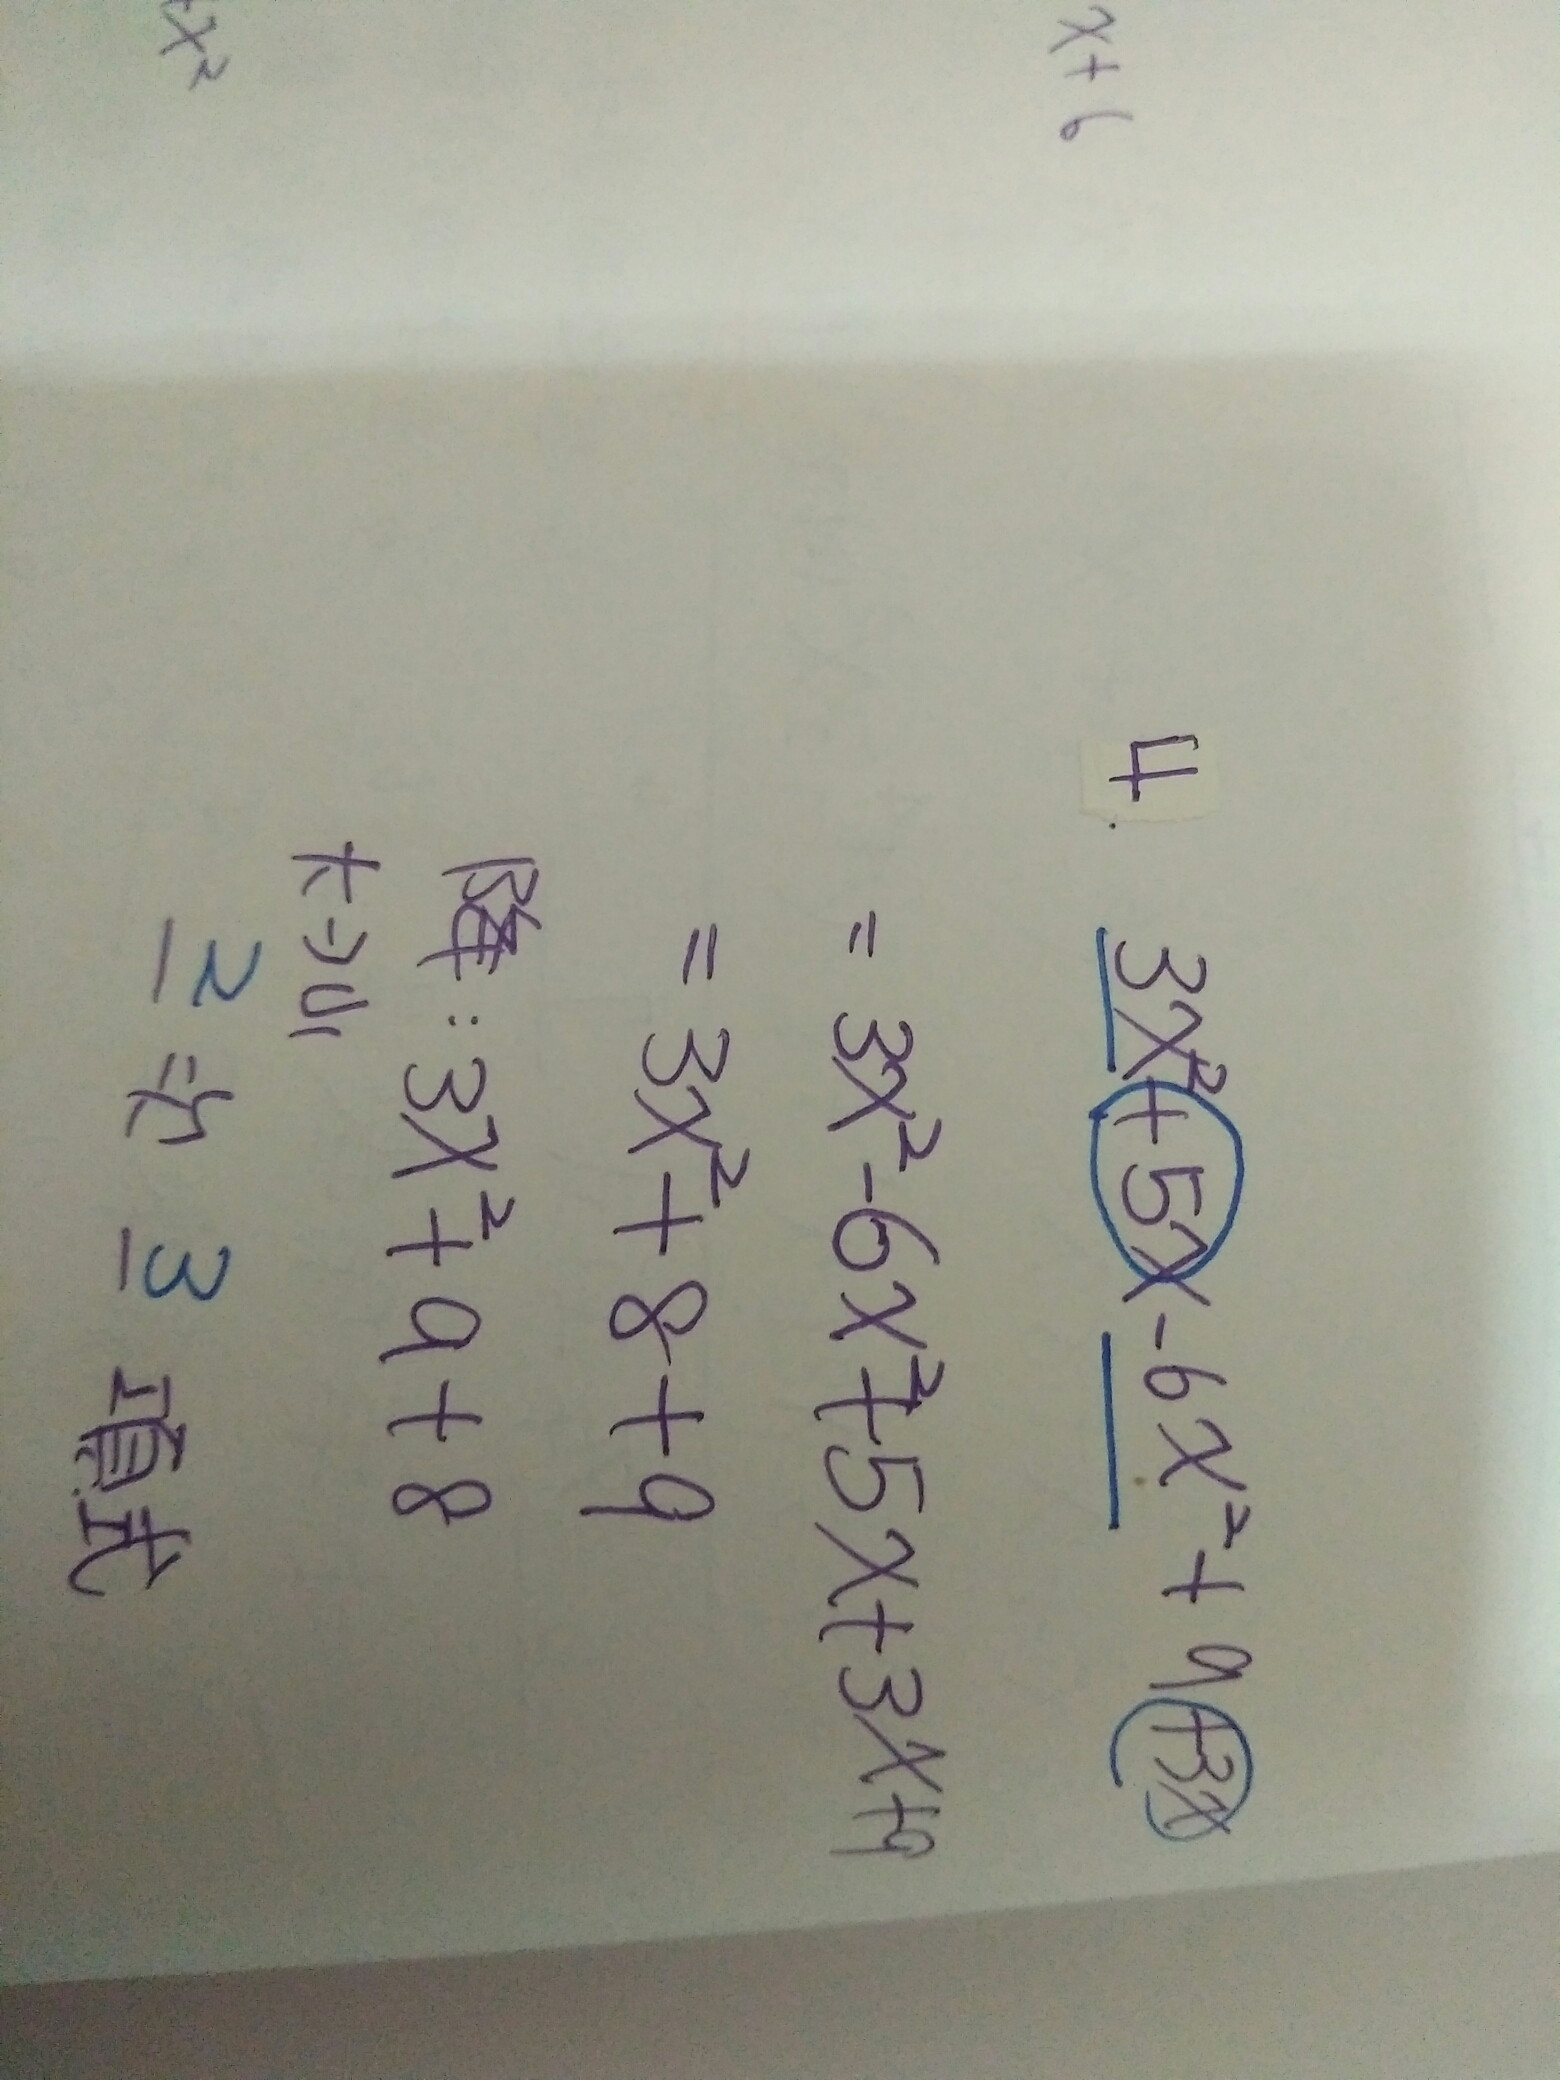 x²
x+6
4. 3x²+5x-6x²+9+3x
=3x²-6x²+5x+3x+9
=3x²+8+9
降:3x²+9+8
大→小
2 次 3 項式